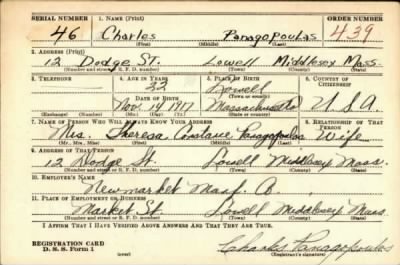 SERIAL NUMBER 1. NAME (Print) ORDER NUMBER
46 Charles Panagopoulos 439
(First) (Middle) (Last)
2. ADDRESS (Print)
12 Dodge ST. Lowell Middlesex Mass.
(Number and street or R. F. D. number) (Town) (County) (State)
3. TELEPHONE 4. AGE IN YEARS 5. PLACE OF BIRTH 6. COUNTRY OF CITIZENSHIP
22 Lowell
DATE OF BIRTH (Town or county)
Nov. 14 1917 Massachusetts U.S.A.
(Exchange) (Number) (Mo.) (Day) (Yr.) (State or country)
7. NAME OF PERSON WHO WILL ALWAYS KNOW YOUR ADDRESS 8. RELATIONSHIP OF THAT PERSON
Mrs. Theresa Constance Panagopoulos Wife
(Mr., Mrs., Miss) (First) (Middle) (Last)
9. ADDRESS OF THAT PERSON
12 Dodge St. Lowell Middlesex Mass.
(Number and street or R. F. D. number) (Town) (County) (State)
10. EMPLOYER'S NAME
Newmarket Manf. Co.
11. PLACE OF EMPLOYMENT OR BUSINESS
Market St Lowell Middlesex Mass.
(Number and street or R. F. D. number) (Town) (County) (State)
I AFFIRM THAT I HAVE VERIFIED ABOVE ANSWERS AND THAT THEY ARE TRUE.
REGISTRATION CARD
D. S. S. Form 1 (over) Charles Panagopoulos
(Registrant's signature)